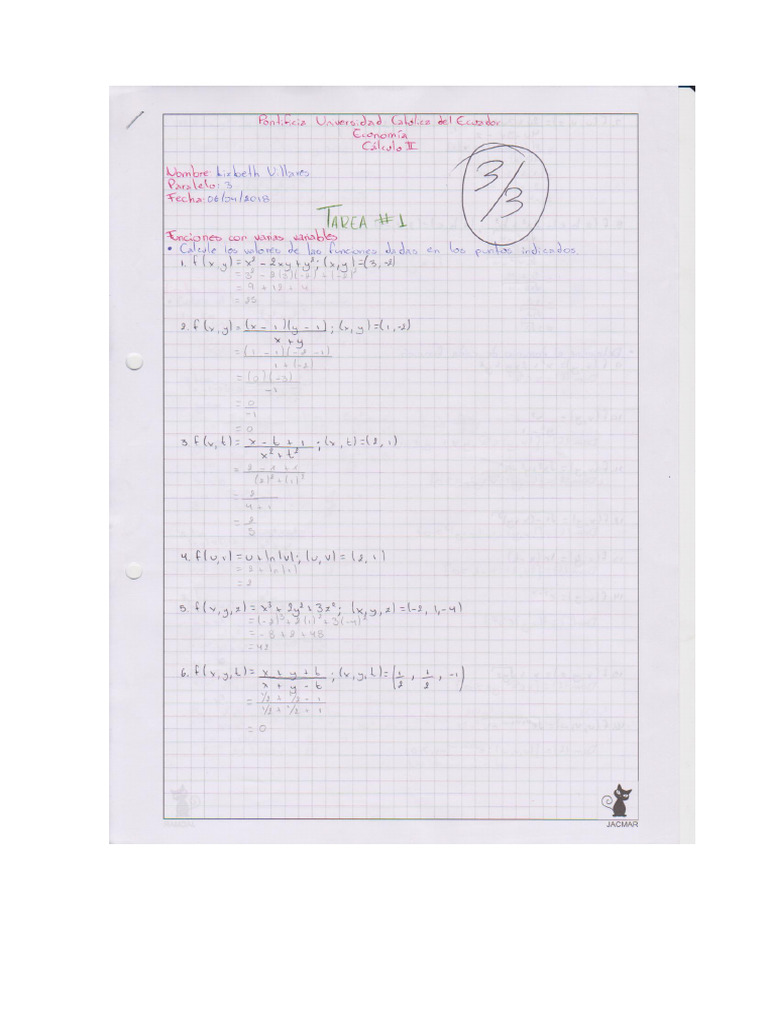 Pontificia Universidad Católica del Ecuador
Economía
Cálculo II
3/3
Nombre: Lizbeth Villares
Paralelo: 3
Fecha: 06/04/2018
TAREA #1
Funciones con varias variables
• Calcule los valores de las funciones dadas en los puntos indicados.
1. f(x,y) = x² - 2xy + y²; (x,y) = (3,-2)
= 3² - 2(3)(-2) + (-2)²
= 9 + 12 + 4
= 25
2. f(x,y) = (x - 1)(y - 1) ; (x,y) = (1,-2)
x + y
= (1 - 1)(-2 - 1)
1 + (-2)
= (0)(-3)
-1
= 0
-1
= 0
3. f(x,t) = x - t + 1 ; (x,t) = (2,1)
x² + t²
= 2 - 1 + 1
(2)² + (1)²
= 2
4 + 1
= 2
5
4. f(u,v) = u + ln(v); (u,v) = (2,1)
= 2 + ln(1)
= 2
5. f(x,y,z) = x³ + 2y² + 3z²; (x,y,z) = (-2,1,-4)
= (-2)³ + 2(1)² + 3(-4)²
= -8 + 2 + 48
= 42
6. f(x,y,t) = x + y + t ; (x,y,t) = (1/2, 1/2, -1)
x + y - t
= 1/2 + 1/2 - 1
1/2 + 1/2 + 1
= 0
JACMAR